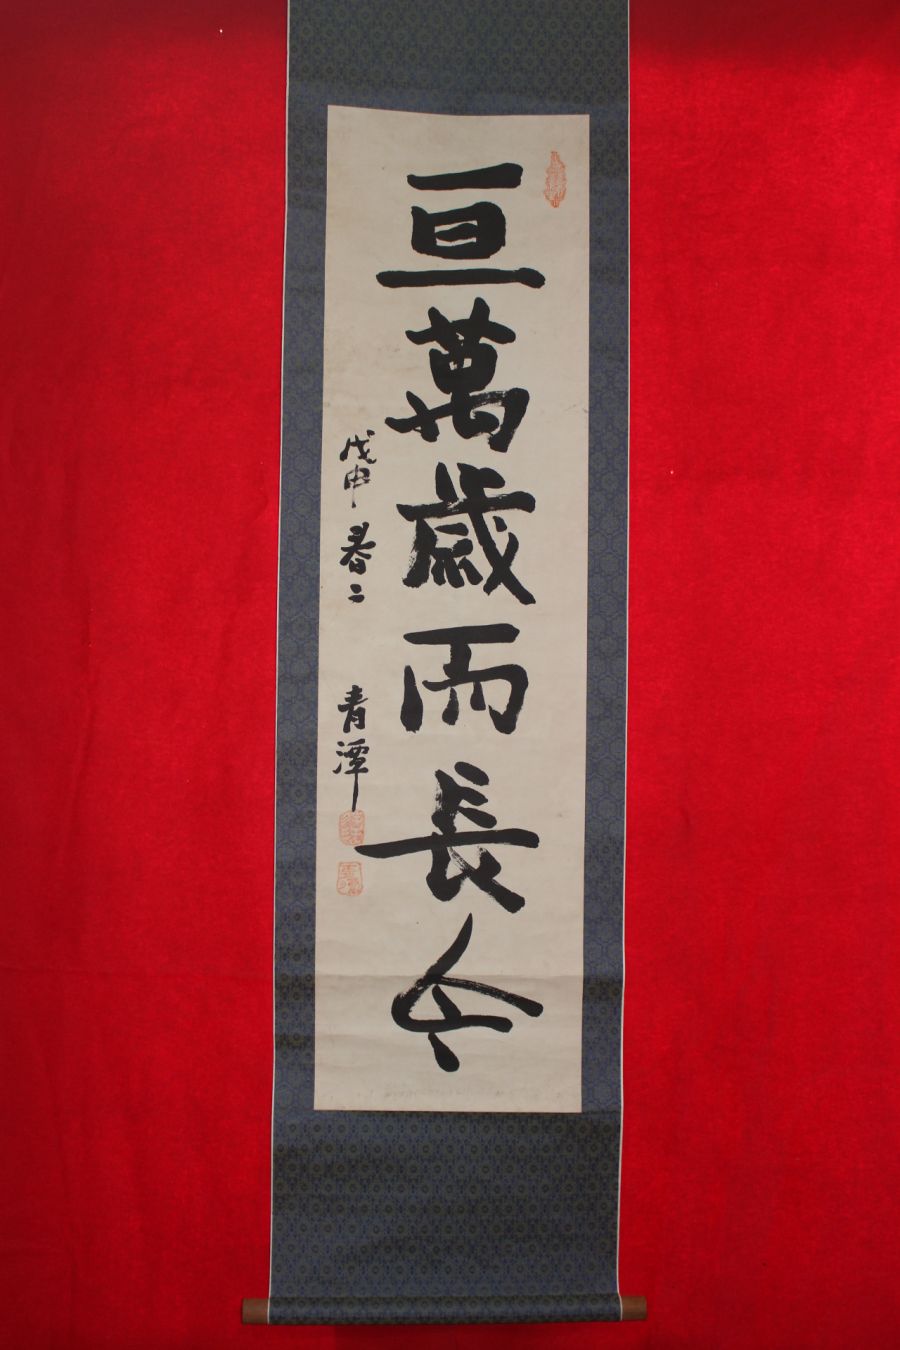 亘萬歳而長今
戊申春二
青潭